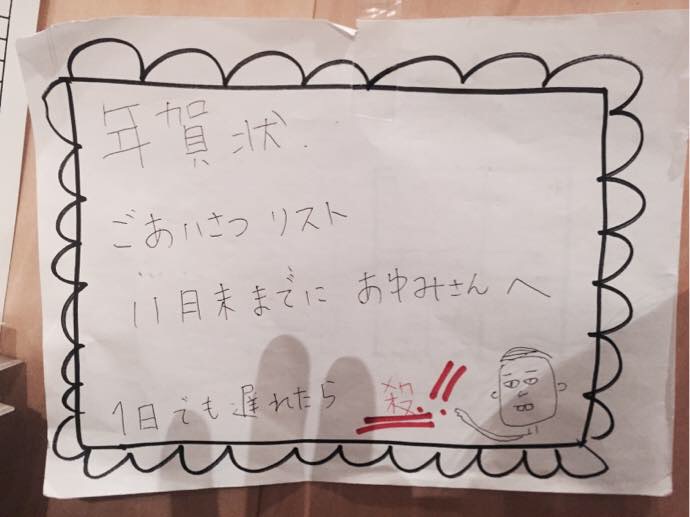 年賀状.
ごあいさつ リスト
11月末までに あゆみさんへ
1日でも遅れたら 殺!!